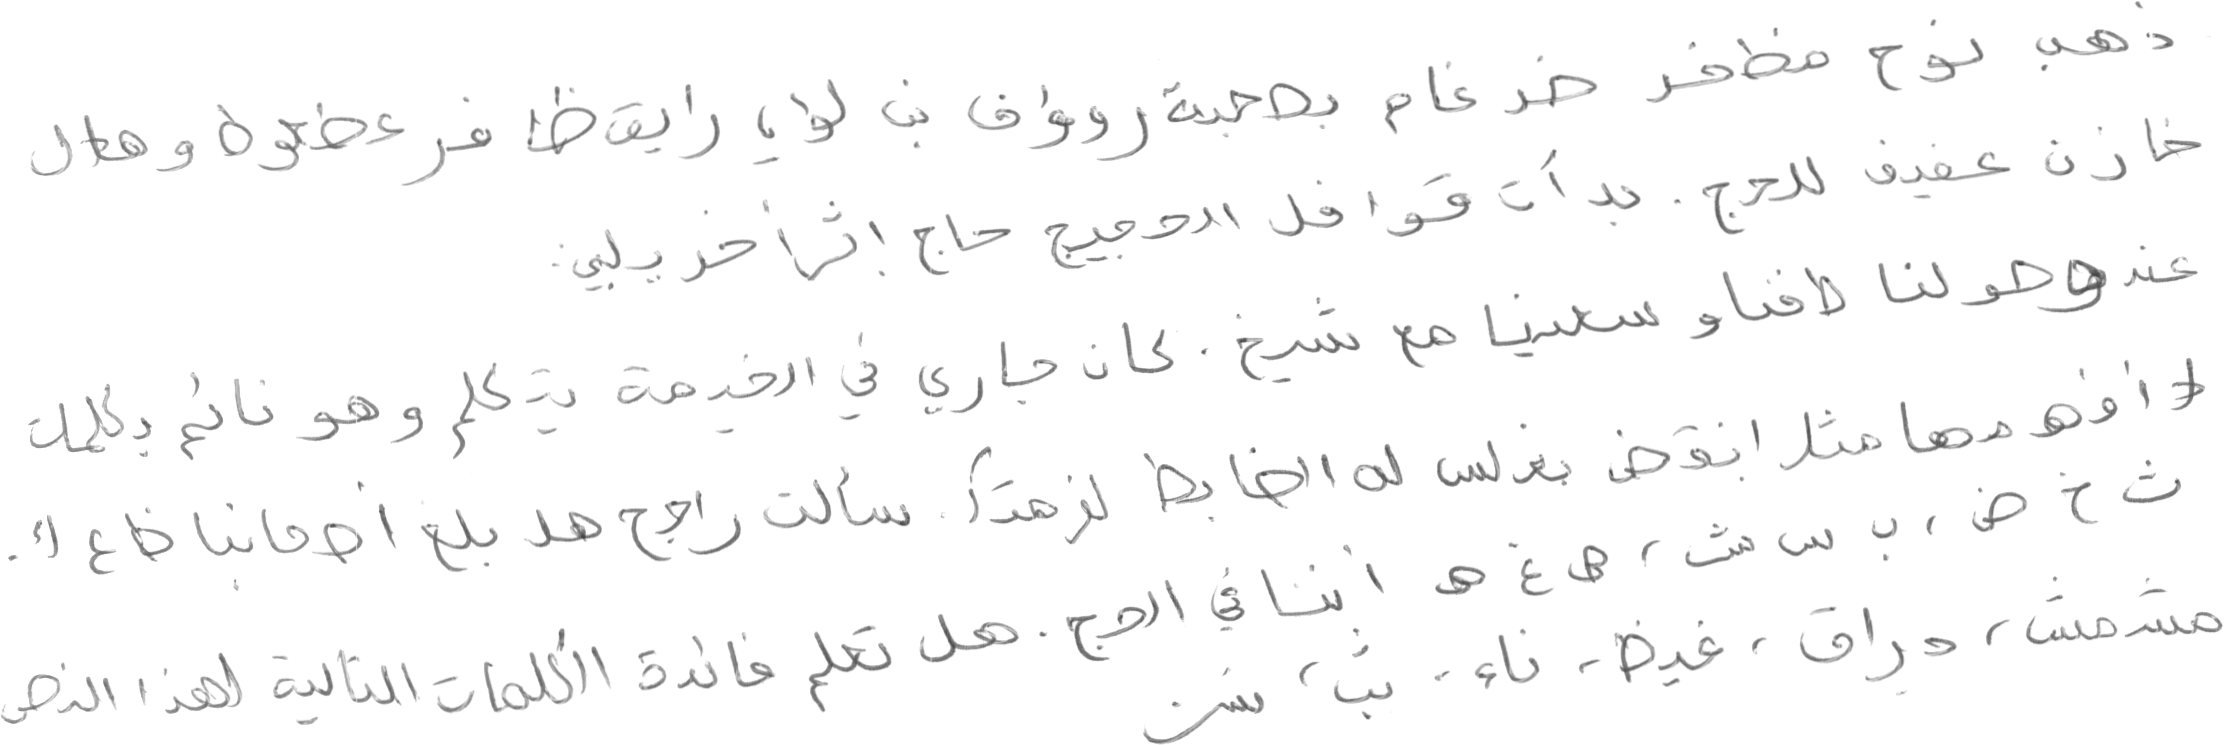 ذهب نوح مظفر ضرغام بصحبة رووؤف بن لؤي رايقظا فر عطعوط وهلال
خازن عفيف للحج. بدأت قوافل الحجيج حاج إثر أخر يلبي.
عند وصولنا لاقنا و سعينا مع شيخ. كان جاري في الخيمة يتكلم وهو نائم بكلمات
لا أفهمها مثل انقض بغلس له الضابط لزهقا. سألت راجح هل بلغ أصحابنا ظاع لا.
ث خ ض، ب س ش، ص غ هـ أبننا في الحج. هل تعلم فائدة الكلمات التالية لهذا النص
مشمش، وراق، غيظ، ناء، بث، شن